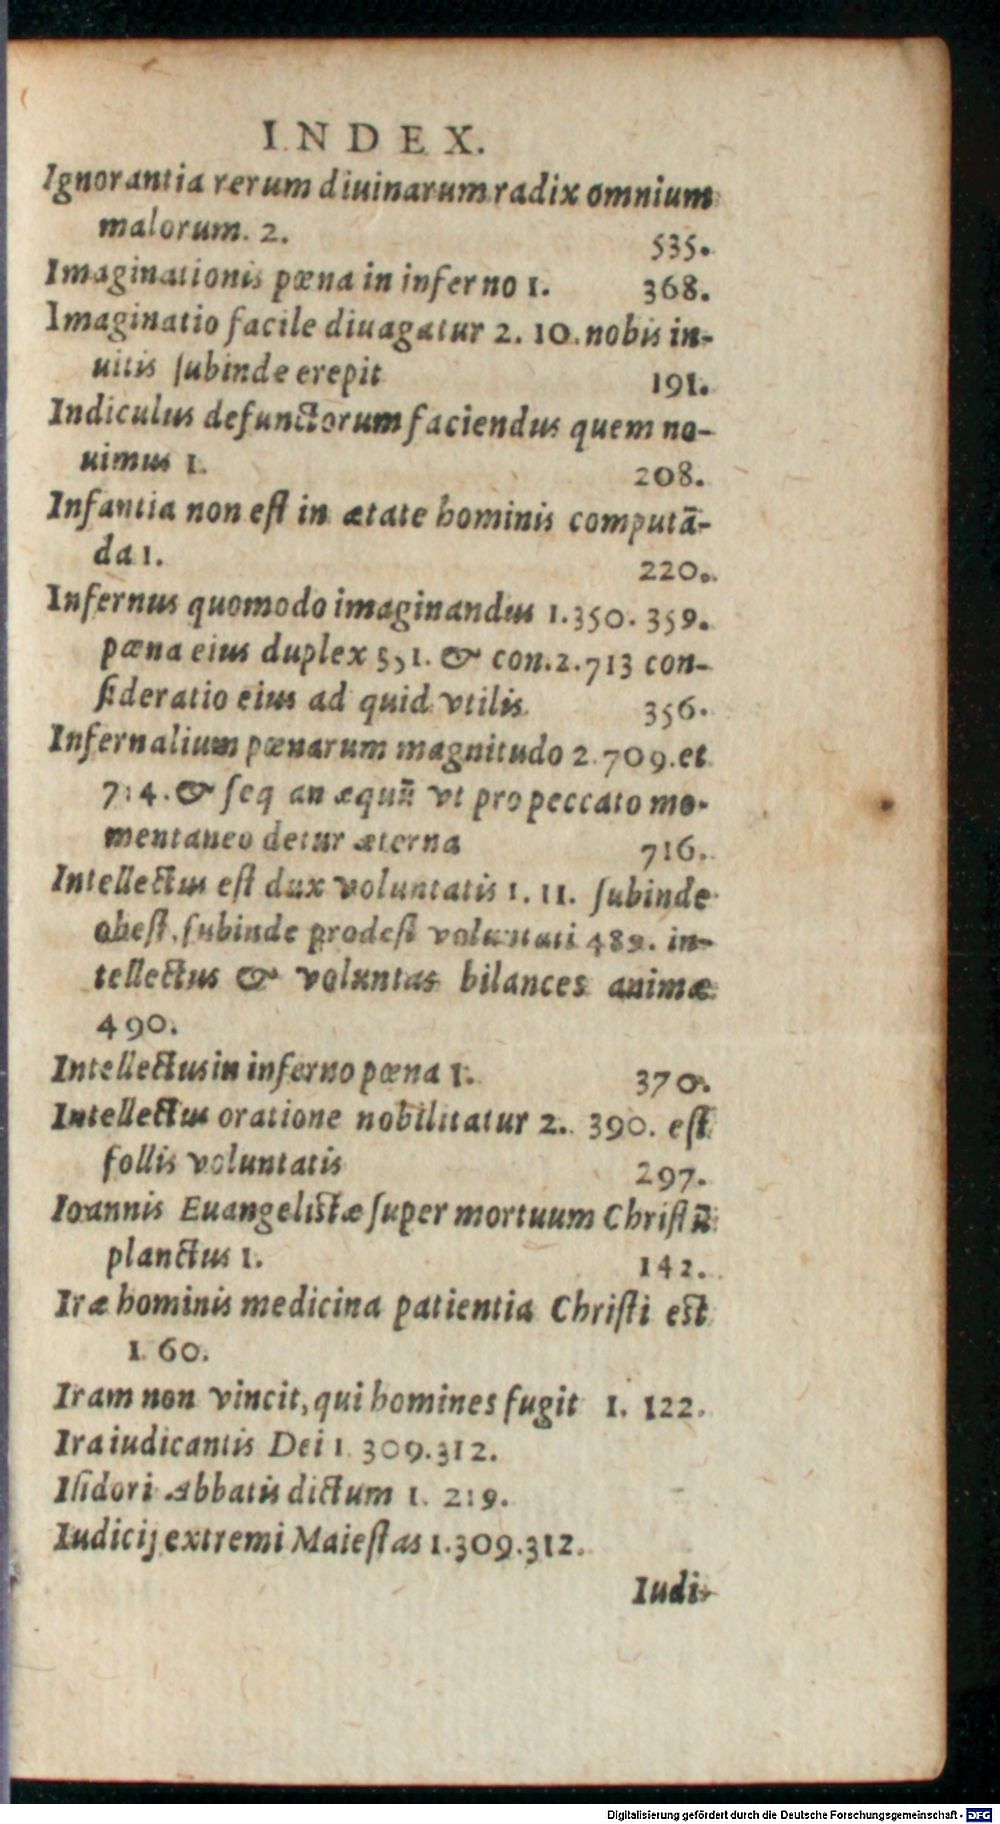 INDEX.
Ignorantia rerum diuinarum radix omnium
malorum. 2. 535.
Imaginationis pœna in inferno 1. 368.
Imaginatio facile diuagatur 2. 10. nobis in-
uitis subinde erepit 191.
Indiculus defunctorum faciendus quem no-
uimus 1. 208.
Infantia non est in ætate hominis computā-
da 1. 220.
Infernus quomodo imaginandus 1. 350. 359.
pœna eius duplex & con. 2. 713 con-
sideratio eius ad quid vtilis 356.
Infernalium pœnarum magnitudo 2. 709. et
714. & seq an æquū vt pro peccato mo-
mentaneo detur æterna 716.
Intellectus est dux voluntatis 1. 11. subinde
obest, subinde prodest voluntati 489. in-
tellectus & voluntas bilances animæ
490.
Intellectus in inferno pœna 1. 370.
Intellectus oratione nobilitatur 2. 390. est
follis voluntatis 297.
Ioannis Euangelistæ super mortuum Christū
planctus 1. 142.
Iræ hominis medicina patientia Christi est
1. 60.
Iram non vincit, qui homines fugit 1. 122.
Ira iudicantis Dei 1. 309. 312.
Isidori Abbatis dictum 1. 219.
Iudicij extremi Maiestas 1. 309. 312.
Iudi-
Digitalisierung gefördert durch die Deutsche Forschungsgemeinschaft - DFG